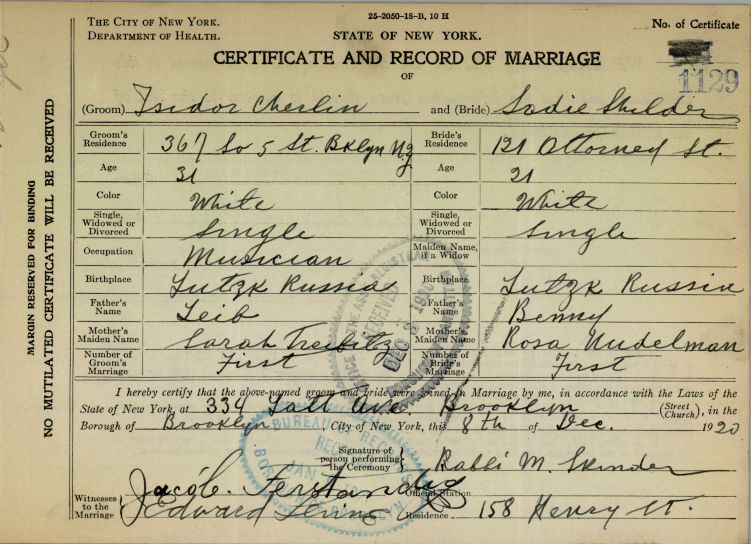 25-2050-18-B, 10 H
THE CITY OF NEW YORK.
DEPARTMENT OF HEALTH.
STATE OF NEW YORK.
No. of Certificate
CERTIFICATE AND RECORD OF MARRIAGE
1129
OF
(Groom) Isidor Cherlin and (Bride) Sadie Shilder
Groom's Residence 367 So 5 St. Bklyn N.Y Bride's Residence 121 Attorney St.
Age 31 Age 21
Color White Color White
Single, Widowed or Divorced Single Single, Widowed or Divorced Single
Occupation Musician Maiden Name, if a Widow
Birthplace Lutzk Russia Birthplace Lutzk Russia
Father's Name Leib Father's Name Benny
Mother's Maiden Name Sarah Mother's Maiden Name Rosa Nudelman
Number of Groom's Marriage First Number of Bride's Marriage First
I hereby certify that the above-named groom and bride were joined in Marriage by me, in accordance with the Laws of the
State of New York, at 334 Ave Brooklyn (Street Church), in the
Borough of Brooklyn City of New York, this 8th of Dec. 1920
Signature of person performing the Ceremony Rabbi M. Skinder
Witnesses to the Marriage Jacob.
Official Station
Edward Levine Residence 158 Henry St.
MARGIN RESERVED FOR BINDING
NO MUTILATED CERTIFICATE WILL BE RECEIVED
RECEIVED
DEC
BUREAU
JAN
BROOKLYN